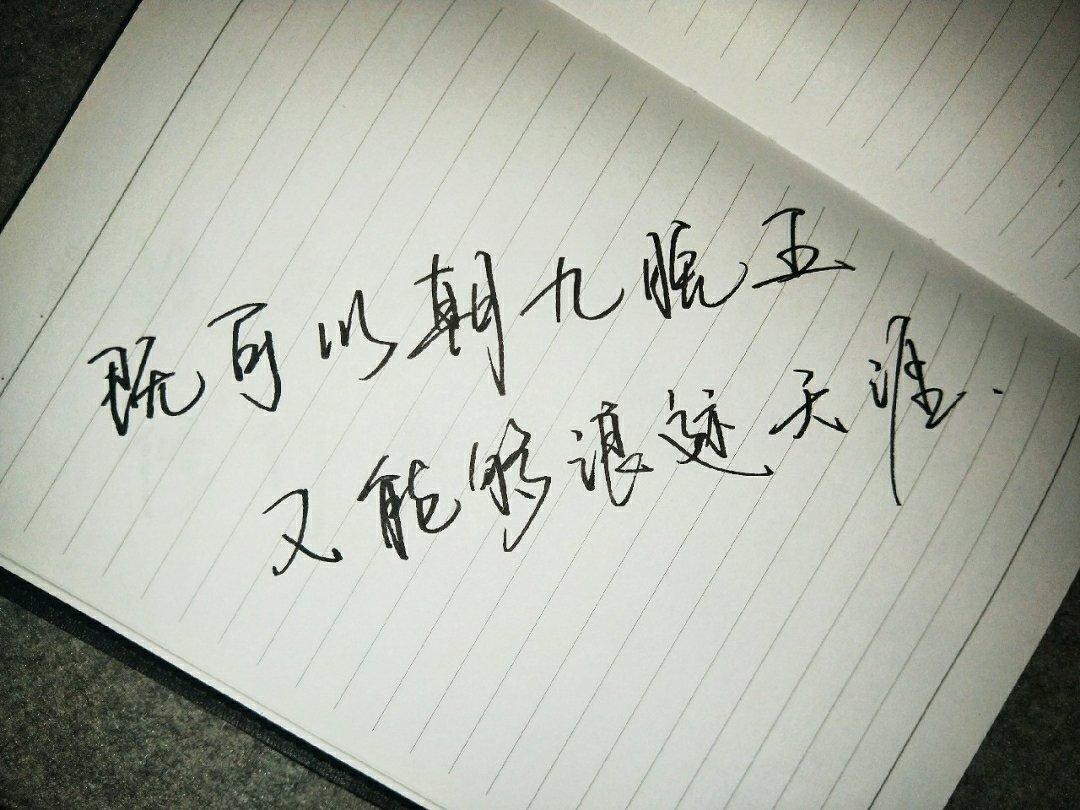 既可以朝九晚五
又能够浪迹天涯.